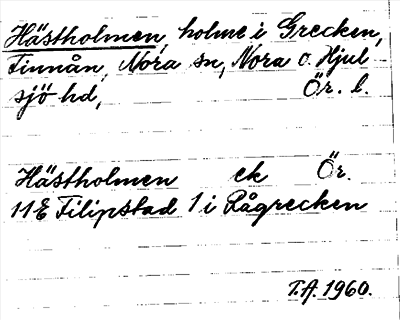 Hästholmen, holme i Grecken,
Finnån, Nora sn, Nora o. Hjul-
sjö hd, Ör. l.
Hästholmen ek Ör.
11 E Filipstad 1 i Rågrecken
T.A. 1960.